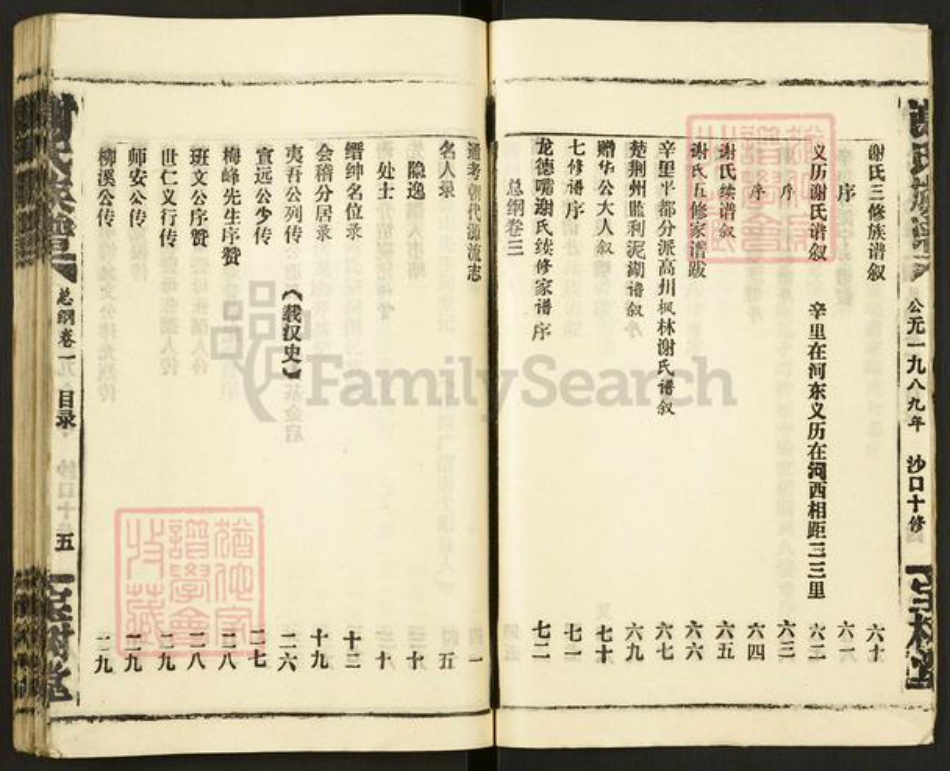 谢氏三修族谱叙 六十
序 六一
义历谢氏谱叙 辛里在河东义历在河西相距二三里 六二
序 六三
序 六四
谢氏续谱叙 六五
谢氏五修家谱跋 六六
辛里平都分派高州枫林谢氏谱叙 六七
楚荆州监利泥湖谱叙 六九
赠华公大人叙 七十
七修谱序 七一
龙德嘴谢氏续修家谱序 七二
总纲卷三
通考朝代源流志 一
名人录 五
隐逸 十
处士 十
缙绅名位录 十二
会稽分居录 十九
夷吾公列传 《载汉史》 二六
宣远公少传 二七
梅峰先生序赞 二八
班文公序赞 二八
世仁义行传 二九
师安公传 二九
柳溪公传 二九
公元一九八九年 沙口十修
谢氏族谱
总纲卷一
目录
五
宝树堂
FamilySearch
犹他家谱学会收藏